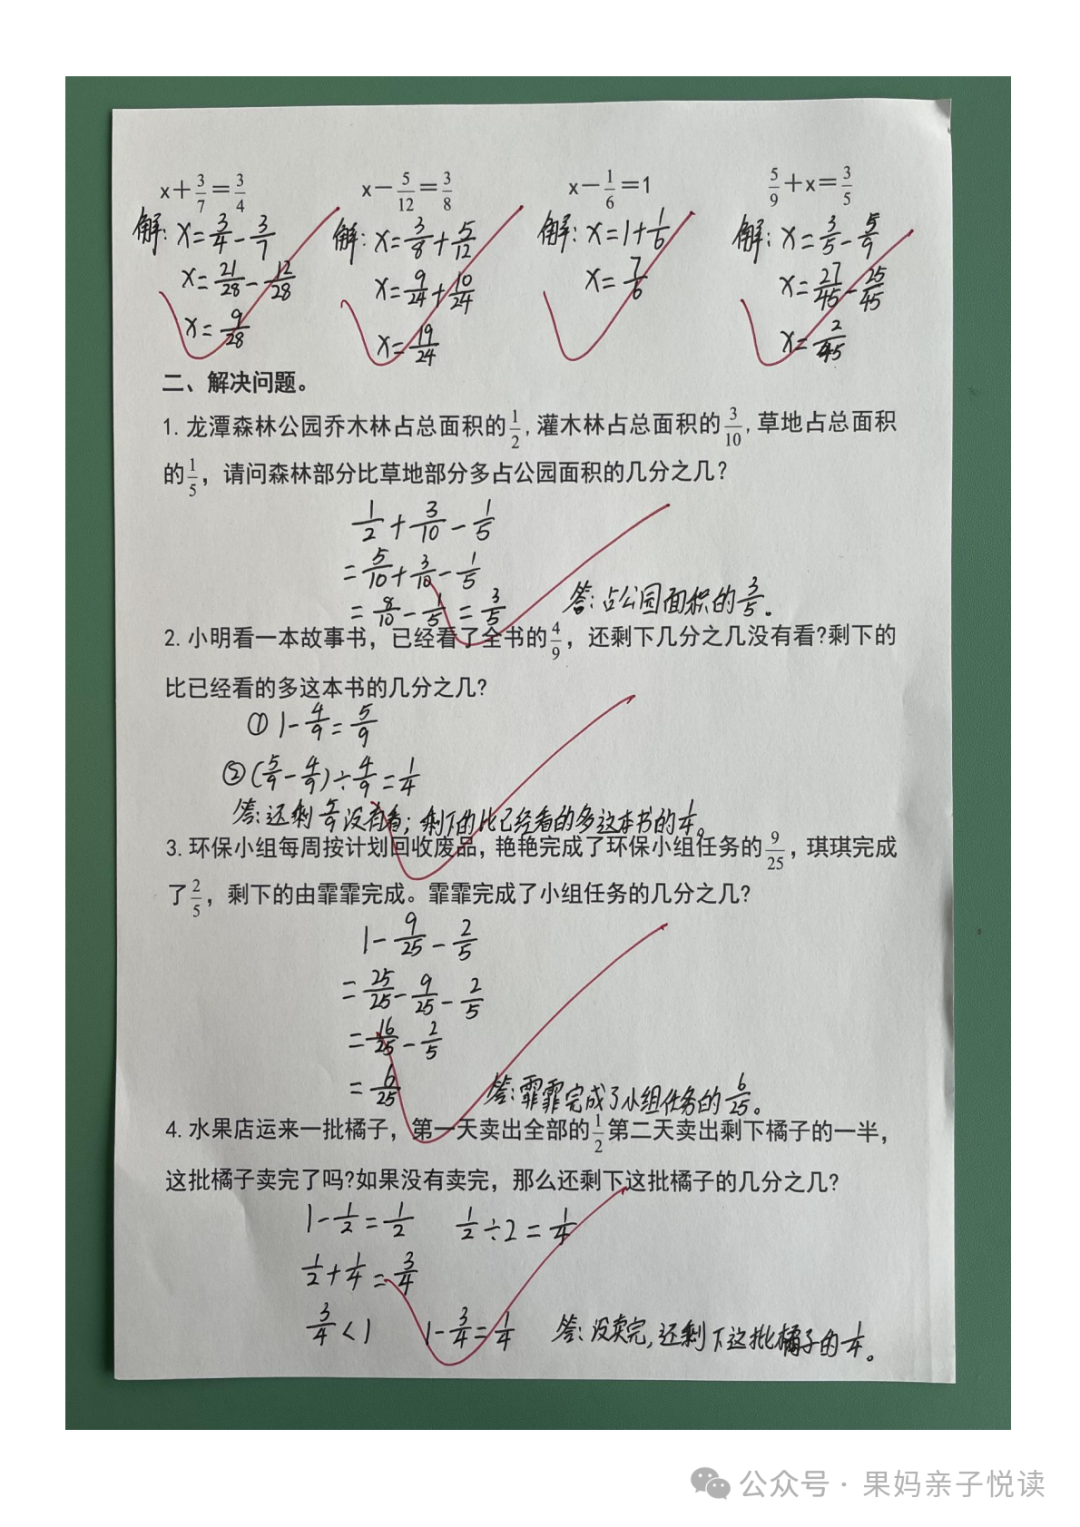 x＋3/7＝3/4　x－5/12＝3/8　x－1/6＝1　5/9＋x＝3/5
解: x=3/4-3/7　解: x=3/8+5/12　解: x=1+1/6　解: x=3/5-5/9
x=21/28-12/28　x=9/24+10/24　x=7/6　x=27/45-25/45
x=9/28　x=19/24　x=2/45
二、解决问题。
1. 龙潭森林公园乔木林占总面积的1/2, 灌木林占总面积的3/10, 草地占总面积
的1/5，请问森林部分比草地部分多占公园面积的几分之几?
1/2+3/10-1/5
=5/10+3/10-1/5
=8/10-1/5=3/5　答: 占公园面积的3/5。
2. 小明看一本故事书，已经看了全书的4/9，还剩下几分之几没有看?剩下的
比已经看的多这本书的几分之几?
① 1-4/9=5/9
② (5/9-4/9)÷4/9=1/4
答: 还剩5/9没有看; 剩下的比已经看的多这本书的1/4。
3. 环保小组每周按计划回收废品，艳艳完成了环保小组任务的9/25，琪琪完成
了2/5，剩下的由霏霏完成。霏霏完成了小组任务的几分之几?
1-9/25-2/5
=25/25-9/25-2/5
=16/25-2/5
=6/25　答: 霏霏完成了小组任务的6/25。
4. 水果店运来一批橘子，第一天卖出全部的1/2第二天卖出剩下橘子的一半，
这批橘子卖完了吗?如果没有卖完，那么还剩下这批橘子的几分之几?
1-1/2=1/2　1/2÷2=1/4
1/2+1/4=3/4
3/4<1　1-3/4=1/4　答: 没卖完, 还剩下这批橘子的1/4。
公众号 · 果妈亲子悦读